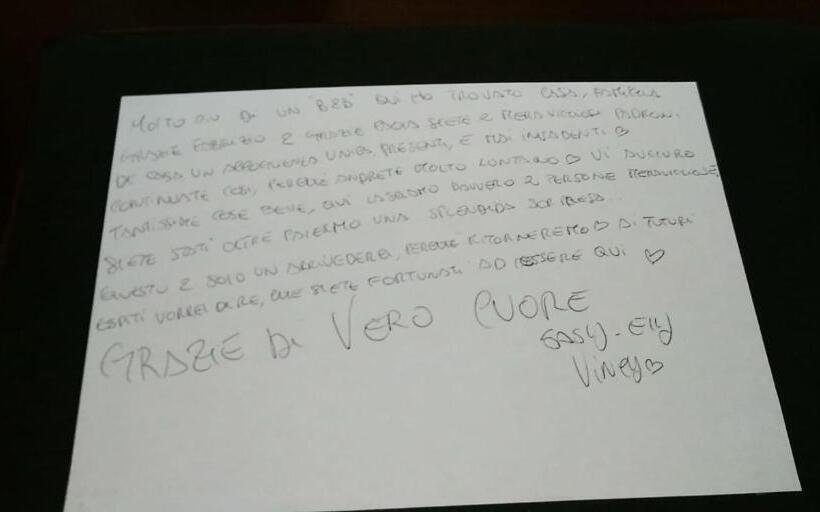 MOLTO PIÙ DI UN "B&B" QUI HO TROVATO CASA, FAMIGLIA
GRAZIE FABRIZIO E GRAZIE PAOLA SIETE 2 MERAVIGLIOSI PADRONI
DI CASA UN'ACCOGLIENZA UNICA, PRESENTI, E MAI INVADENTI ♡
CONTINUATE COSÌ, PERCHÉ ANDRETE MOLTO LONTANO ♡ VI AUGURO
TANTISSIME COSE BELLE, QUI LASCIAMO DAVVERO 2 PERSONE MERAVIGLIOSE,
SIETE STATI OLTRE PALERMO UNA SPLENDIDA SORPRESA..
QUESTO È SOLO UN ARRIVEDERCI, PERCHÉ RITORNEREMO ♡ AI FUTURI
OSPITI VORREI DIRE, CHE SIETE FORTUNATI AD ESSERE QUI ♡
GRAZIE DI VERO CUORE
GASLY - ELLY
VINCY ♡